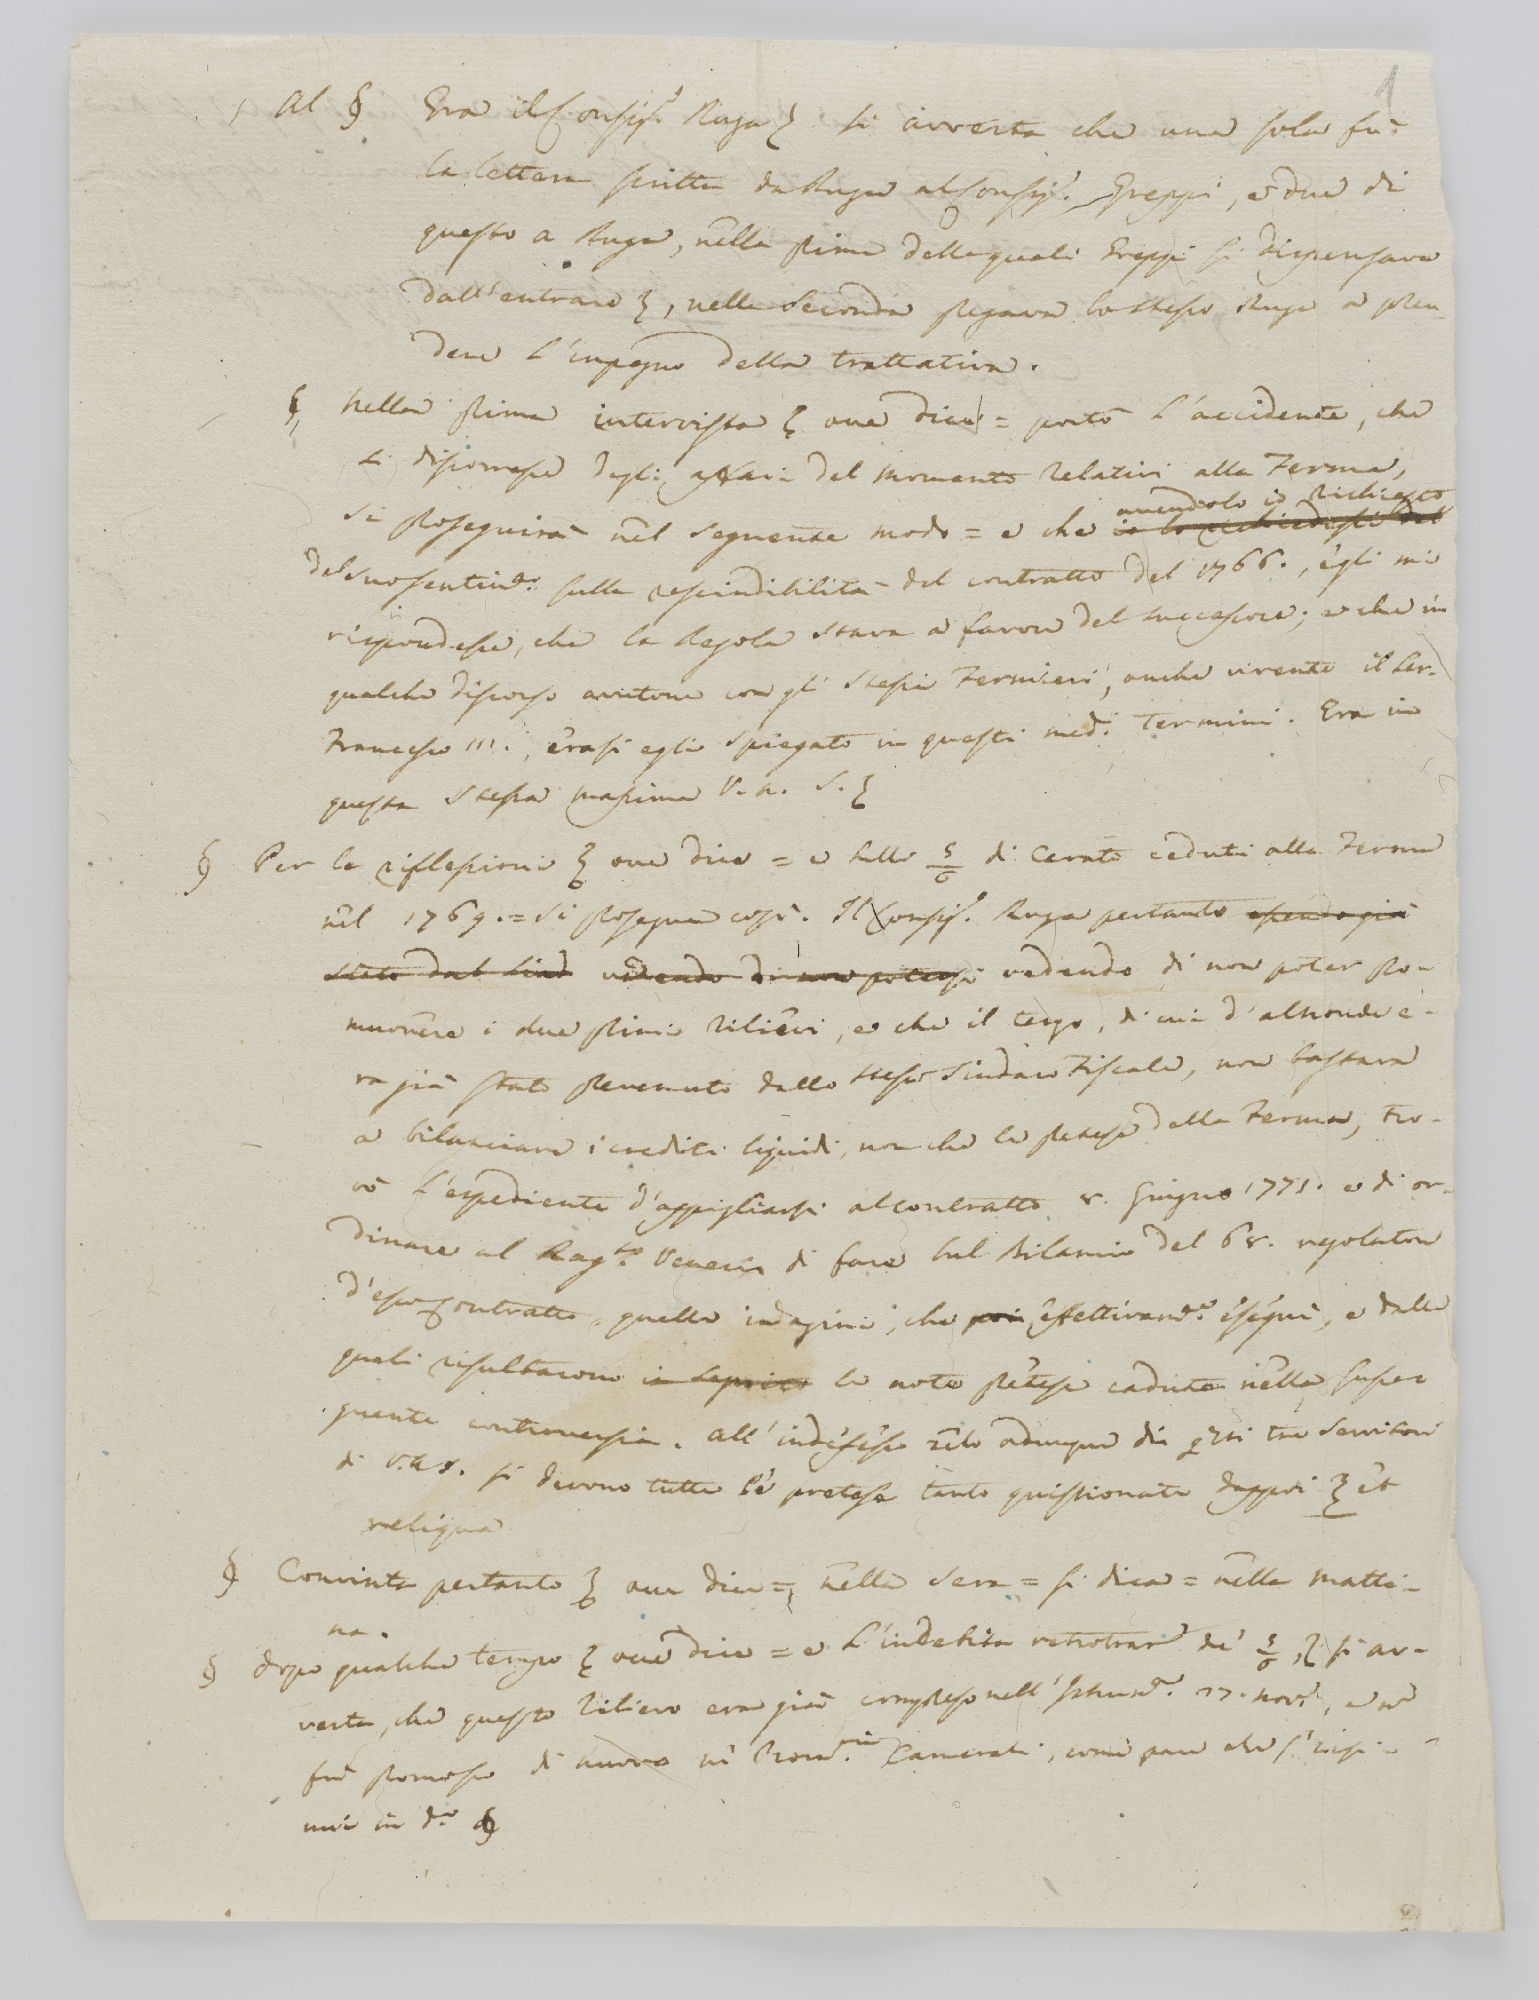 1
Al § Era il Consig.r Ruga § si avverta che una sola fù
la lettera scritta da Ruga al Consig.r Greppi, e due di
questo a Ruga, nella prima delle quali Greppi si dispensava
dall'entrare §, nella seconda pregava lo stesso Ruga a pren-
dere l'impegno della trattativa.
§ Nella prima intervista § ove dice = portò l'accidente, che
si discorresse degli affari del momento relativi alla Ferma,
avendolo io richiesto
si proseguirà nel seguente modo = e che io lo richiedessi del
del suo sentim.to sulla rescindibilità del contratto del 1766., egli mi
rispondesse, che la regola stava a favore del successore; e che in
qualche discorso avutone con gli stessi Fermieri, anche vivente il Ser.
Francesco III., erasi egli spiegato in questi med.i termini. Era in
questa stessa massima V. A. S. §
§ Per le riflessioni § ove dice = e sulli 5/6 di Cervato ceduti alla Ferma
nel 1769. = si prosegua così. Il Consig.r Ruga pertanto essendo già
stato dal Sind vedendo di non potersi vedendo di non poter pro-
muovere i due primi rilievi, e che il terzo, di cui d'altronde e-
ra già stato prevenuto dallo stesso Sindaco Fiscale, non bastava
a bilanciare i crediti liquidi, non che le pretese della Ferma, tro-
vò l'espediente d'appigliarsi al contratto 8. Giugno 1771. e di or-
dinare al Rag.to Venerio di fare sul Bilancio del 68. regolatore
d'esso Contratto, quelle indagini, che poi effettivam.e eseguì, e dalle
quali risultarono le note pretese cadute nella susse
guente controversia. All'indefesso zelo adunque di q.sti tre servitori
di V.A.S. si devono tutte le pretese tanto quistionate dappoi § et
reliqua
§ Convinto pertanto § ove dice = nella sera = si dica = nella matti-
na.
§ dopo qualche tempo § ove dice = e l'indebita retrotraz.e de' 5/6 § si av-
verta, che questo rilievo era già compreso nell'Istrum.o 17. Nov.e, e n.n
fù promosso di nuovo ne' Camerali, come pare che s'insi-
nui in d.o §